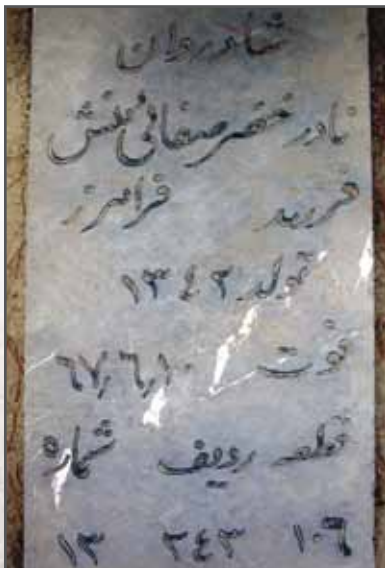 شادروان
نادر عنصر صفائی منش
فرزند فرامرز
تولد ۱۳۴۲
فوت ۶۷٫۶٫۱۰
قطعه ردیف شماره
۱۰۶ ۲۴۳ ۱۳